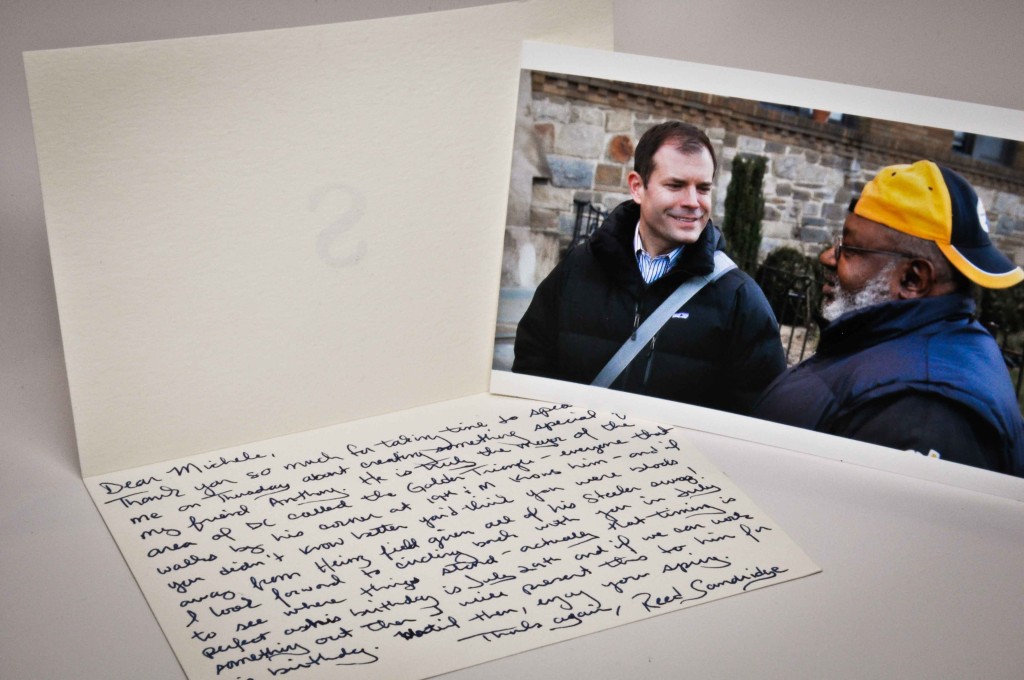 S
Dear Michele,
Thank you so much for taking time to spea
me on Thursday about creating something special f
my friend Anthony. He is truly the mayor of the
area of DC called the Golden Triangle - everyone that
walks by his corner at 19th & M knows him - and if
you didn't know better you'd think you were blocks
away from Heinz field given all of his Steeler swag!
I look forward to circling back with you in July
to see where things stand - actually that timing is
perfect as his birthday is July 29th and if we can work
something out then I will present this to him for
is birthday. Until then, enjoy your spring.
Thanks again, Reed Sandridge